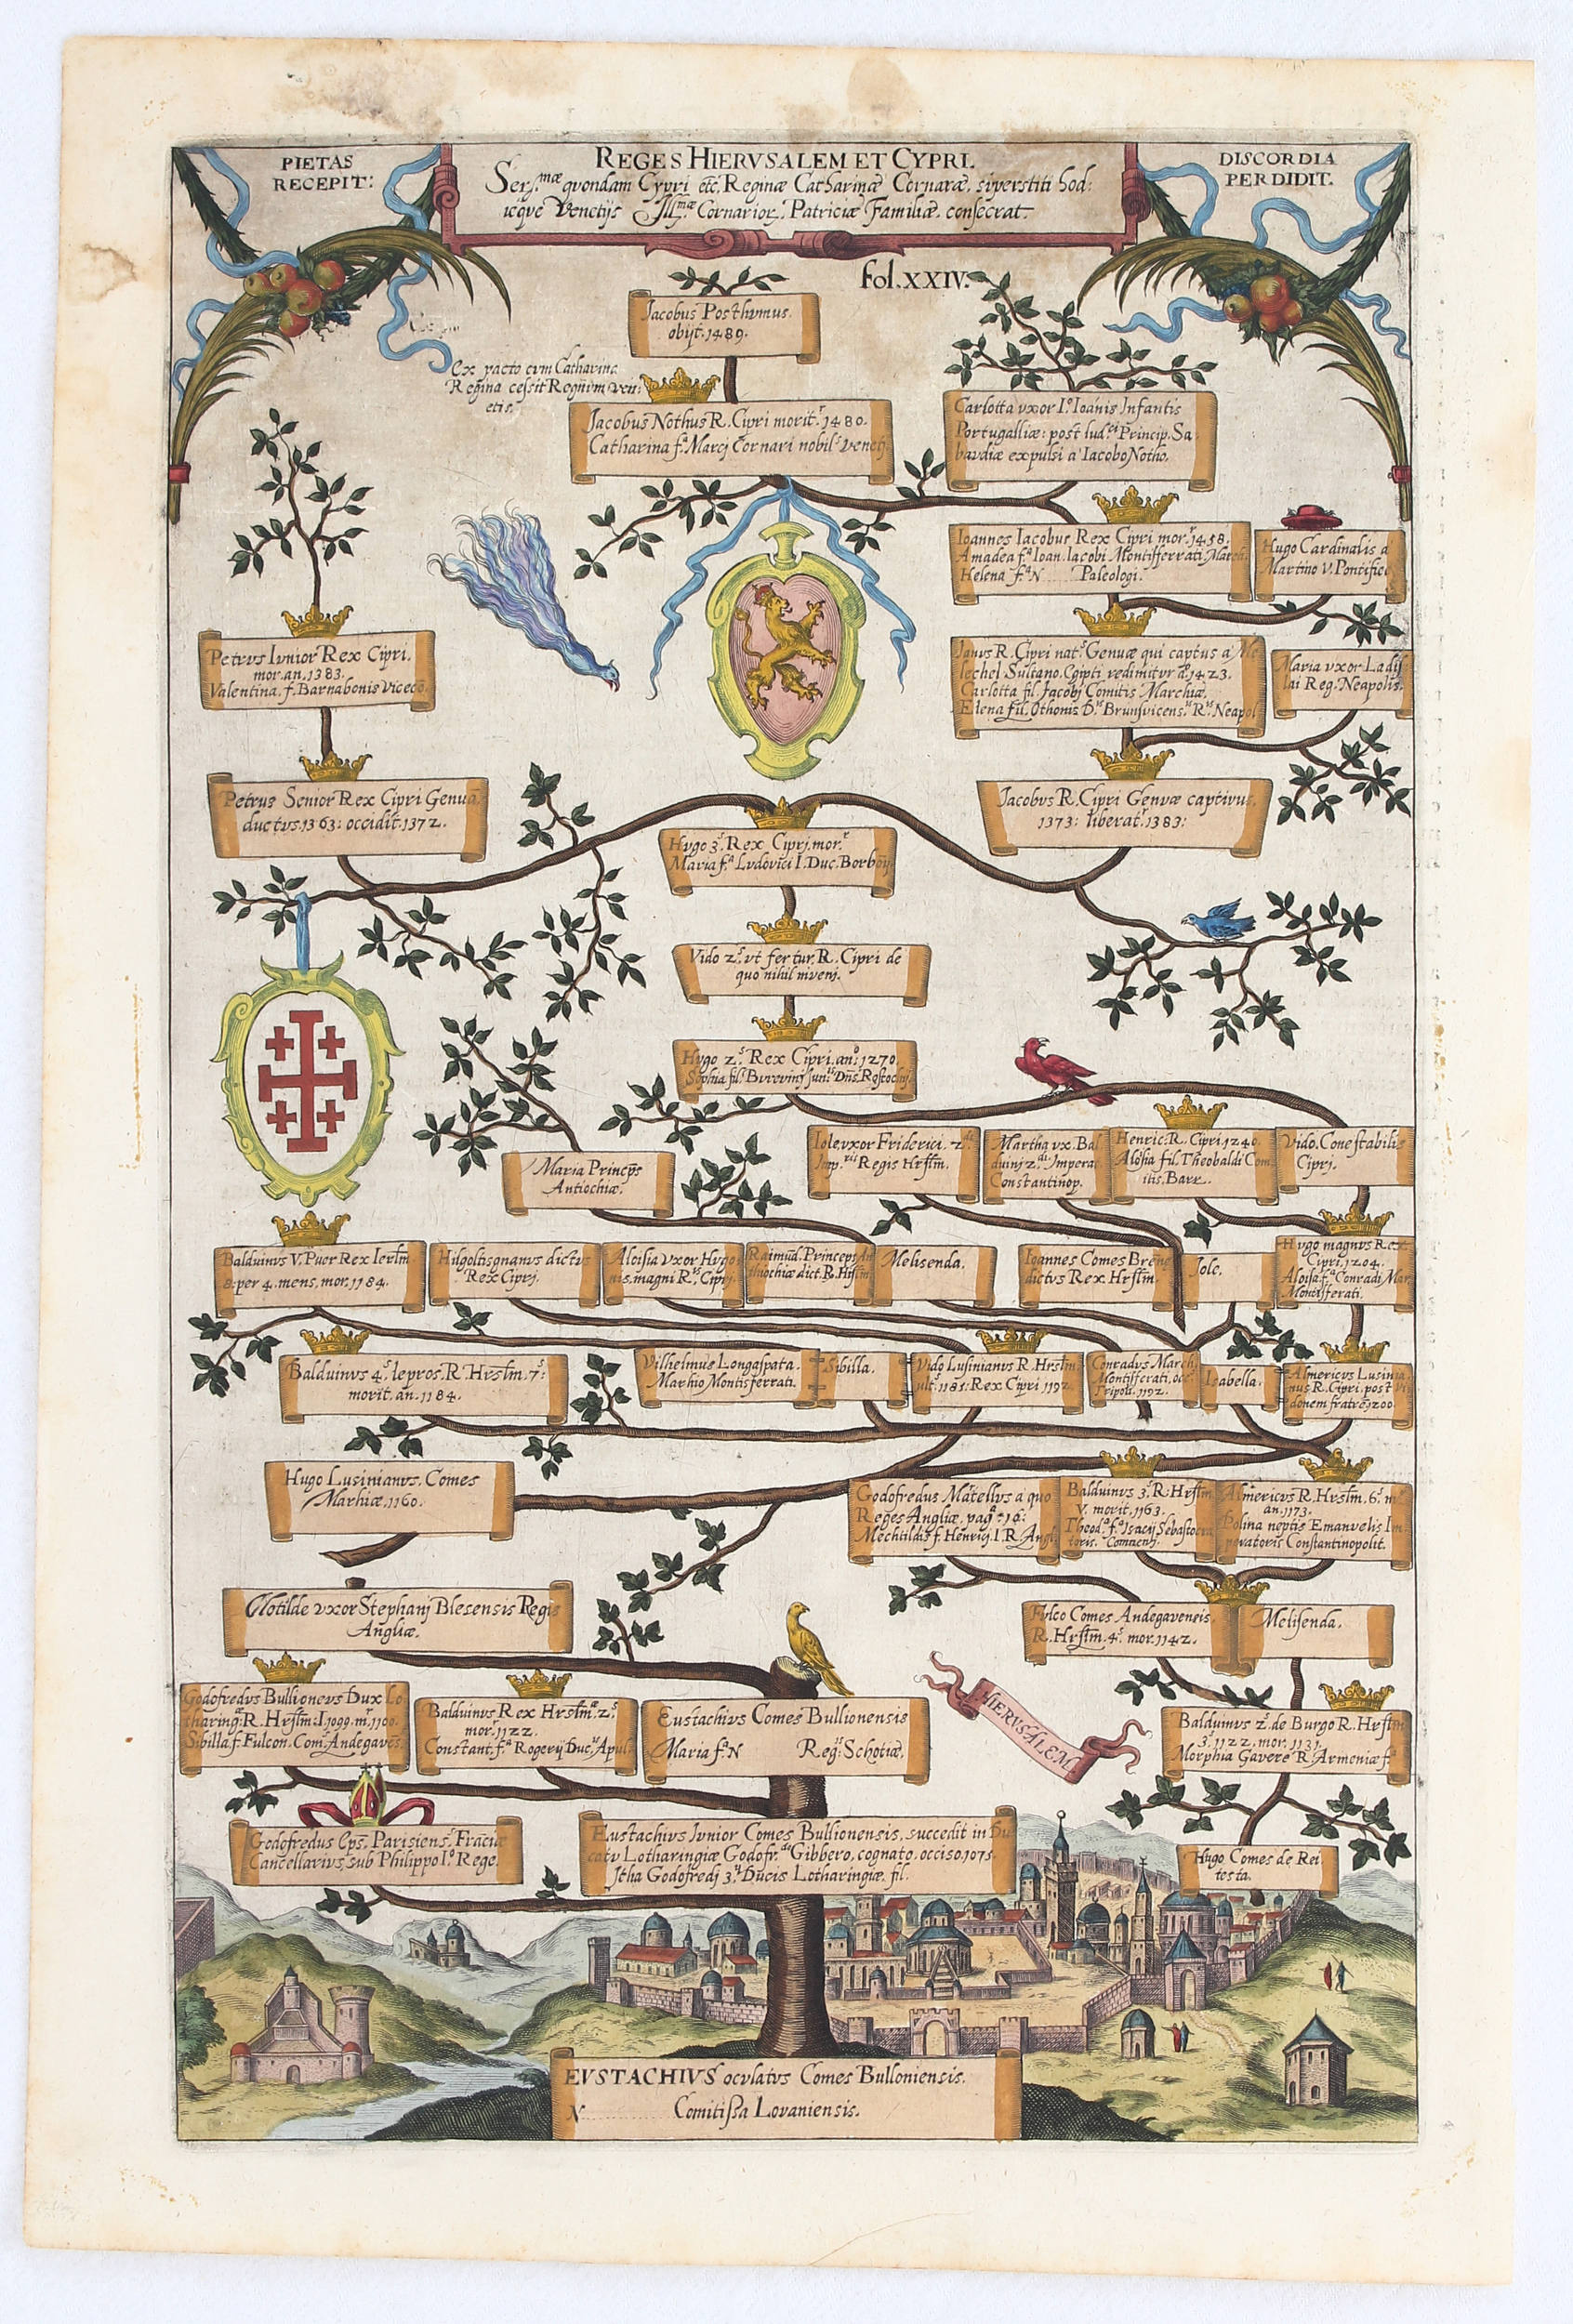 PIETAS
RECEPIT:
REGES HIERVSALEM ET CYPRI.
Ser.mæ qvondam Cypri etc, Reginæ Catharinæ Cornaræ, svperstiti hod:
ieqve Venetijs Ill.mæ Cornarior, Patriciæ Familiæ, consecrat.
DISCORDIA
PERDIDIT.
fol. XXIV.
Jacobus Posthvmus.
obijt. 1489.
Ex pacto cvm Catharina
Regina cessit Regnvm Ven:
etis.
Jacobus Nothus R. Cipri morit.r 1480.
Catharina f.a Marci Cornari nobil.s venetj.
Carlotta vxor I.o Ioanis Infantis
Portugalliæ: post lud.ci Princip. Sa
baudiæ expulsi a Iacobo Notho.
Ioannes Iacobus Rex Cipri mor.r 1458.
Amadea f.a Ioan. Iacobi Montisferrati March
Helena f.a N Paleologi.
Hugo Cardinalis a
Martino V. Pontifice
Petrvs Ivnior Rex Cipri.
mor. an. 1383.
Valentina. f. Barnabonis Viceco
Janvs R. Cipri nat.s Genuæ qui captus a Me
lechel Sultano Egipti redimitvr a.o 1423.
Carlotta fil. Jacobj Comitis Marchiæ.
Elena fil. Othonis D.is Brunsvicens.is R.is Neapol
Maria vxor Ladis
lai Reg. Neapolis.
Petrus Senior Rex Cipri Genua
ductvs. 1363: occidit. 1372.
Jacobvs R. Cipri Genvæ captivus.
1373: liberat.r 1383:
Hvgo 3.s Rex Ciprj. mor.r
Maria f.a Lvdovici I. Duc. Borboij
Vido 2.s vt fertur, R. Cipri de
quo nihil invenj.
Hvgo 2.s Rex Cipri. an.o 1270.
Sophia fil. Bvrvinj jun.is Dnj. Rostochij
Maria Princps
Antiochiæ.
Iole vxor Friderici. 2.di
Imp.rii Regis Hrslm.
Martha vx. Bal
duinj 2.di Imperat
Constantinop.
Henric. R. Cipri. 1240.
Alosia fil. Theobaldi Com
itis. Barr.
Vido. Conestabilis
Ciprj.
Balduinvs V. Puer Rex Ierslm
8: per 4. mens, mor. 1184.
Hugoltisgnanvs dictvs
Rex Ciprj.
Aloisia vxor Hvgo
nis. magni R.is Ciprj.
Raimud. Princeps An
thiochiæ dict. R. Hrslm
Melisenda.
Ioannes Comes Brenę
dictvs Rex Hrslm.
Iole.
Hvgo magnvs Rex
Cipri. 1204.
Aloisa f.a Conradi Mar
Montisferati.
Balduinvs 4.s lepros. R. Hrslm. 7.s:
morit. an. 1184.
Vilhelmus Longaspata.
Marhio Montisferrati.
Sibilla.
Vido Lusinianvs R. Hrslm
ult.s 1185: Rex Cipri 1192.
Conradvs March
Montisferati, occ.s
Tripoli. 1192.
Isabella.
Almericvs Lusinia
nus R. Cipri. post Vi
donem fratrē 1200
Hugo Lusinianvs. Comes
Marhiæ. 1160.
Godofredus Matellvs a quo
Reges Angliæ. pag.a 16:
Mechtildis f. Henrici. I. R. Angl
Balduinvs 3.s R. Hrslm
V. morit. 1163.
Theod.a f.a Isacij Sebastocra
toris. Comnenj.
Almericvs R. Hrslm. 6.s m.r
an. 1173.
Polina neptis Emanvelis Im
peratoris Constantinopolit.
Clotilde vxor Stephanj Blesensis Regis
Angliæ.
Fvlco Comes Andegavensis
R. Hrslm. 4.s mor. 1142.
Melisenda.
Godofredvs Bullionevs Dux Lo
tharing. R. Hrslm: I. 1099. m.r 1100.
Sibilla f. Fulcon. Com. Andegaves.
Balduinvs Rex Hrslm.æ 2.s
mor.r 1122.
Constant. f.a Rogerij Duc.is Apul
Eustachivs Comes Bullionensis
Maria f.a N Reg: Schotiæ.
HIERVSALEM
Balduinvs 2.s de Burgo R. Hrslm
3.s 1122. mor. 1131.
Morphia Gavere R. Armeniæ f.a
Godofredus Eps. Parisiens. Fraciæ
Cancellarivs, sub Philippo I.o Rege.
Eustachivs Ivnior Comes Bullionensis, succedit in Du
catv Lotharingiæ Godofr.do Gibbero, cognato, occiso. 1075.
Itha Godofredj 3.ii Ducis Lotharingiæ. fil.
Hugo Comes de Rei
testa.
EVSTACHIVS ocvlatvs Comes Bulloniensis.
N Comitissa Lovaniensis.